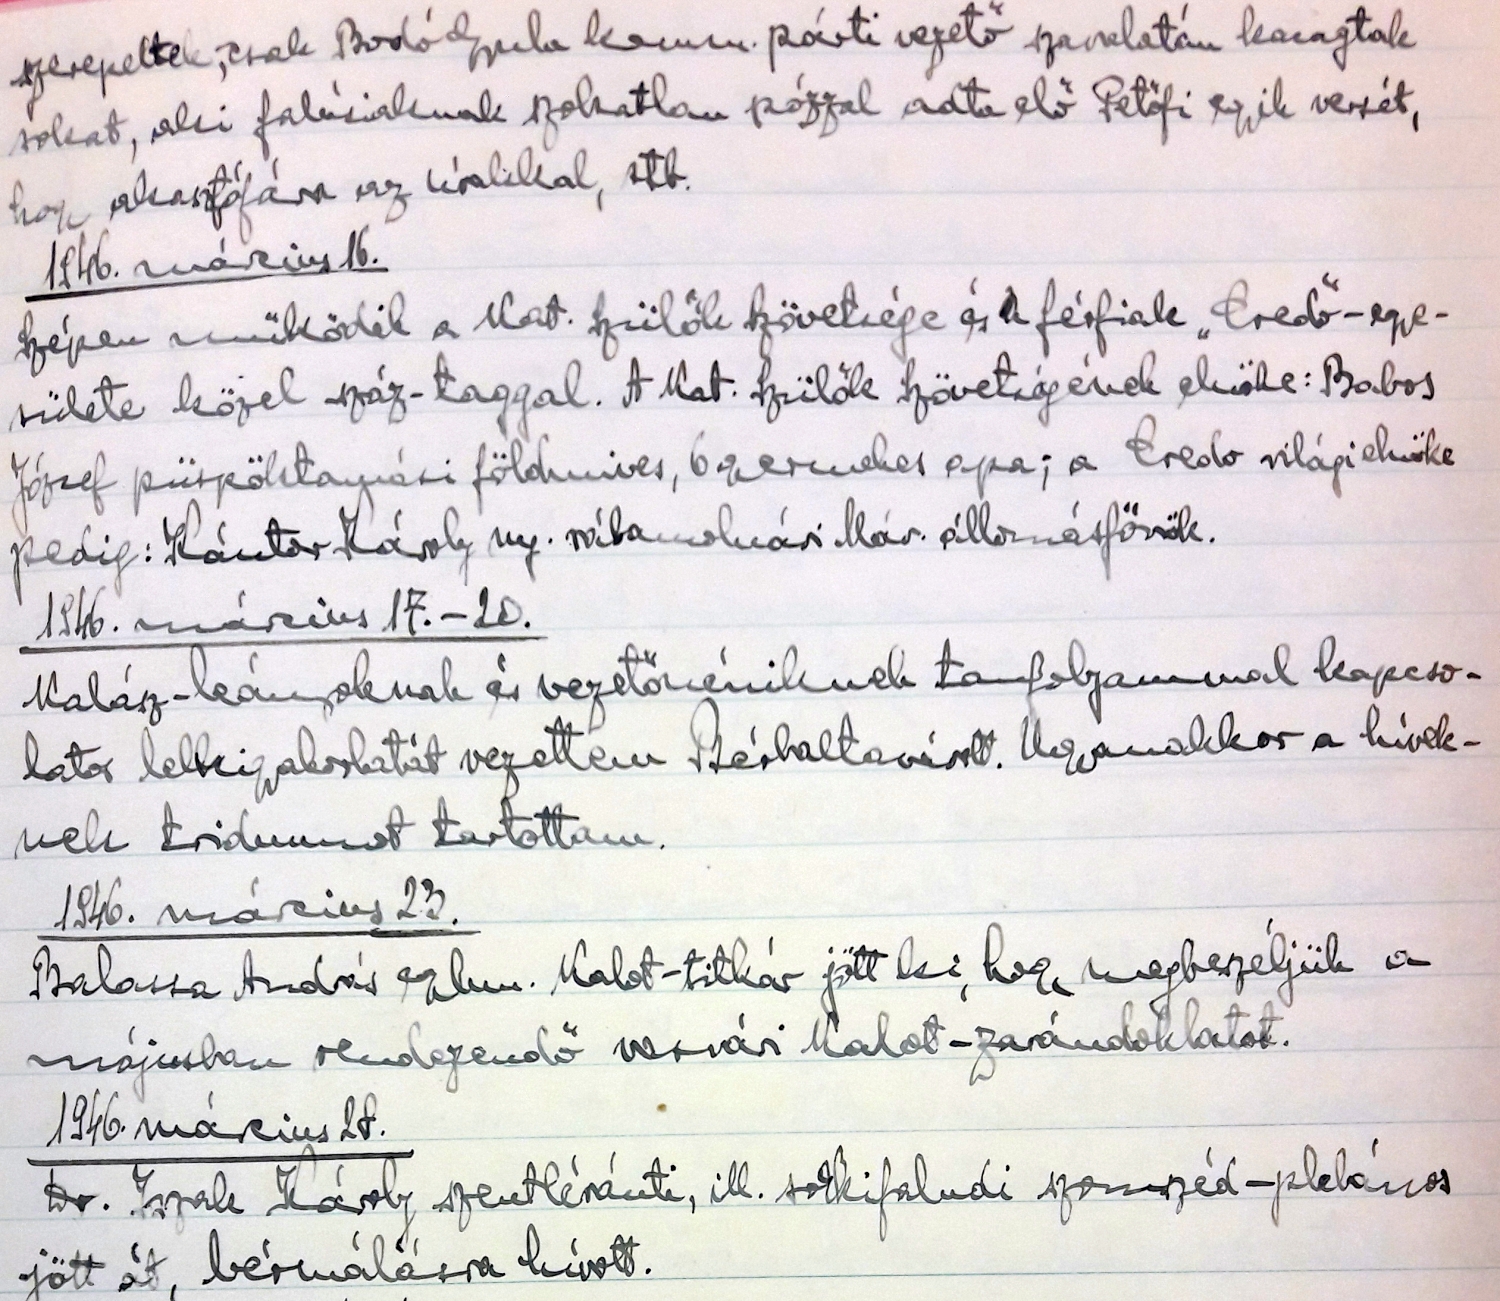 szerepeltek, csak Bodó Gyula komm. párti vezető szavalatán kacagtak
sokat, aki falusiaknak szokatlan pózzal adta elő Petőfi egyik versét,
hogy akasztófára az urakkal, stb.
1946. március 16.
Szépen működik a Kat. Szülők Szövetsége és a férfiak „Credo-egye-
sülete közel száz-taggal. A Kat. Szülők Szövetségének elnöke: Babos
József püspöktamási földmives, 6 gyermekes apa; a Credo világi elnöke
pedig: Kántor Károly ny. rábamolnári Máv. állomásfőnök.
1946. március 17.-20.
Kalász-leányoknak és vezetőnéniknek tanfolyammal kapcso-
latos lelkigyakorlatát vezettem Bérbaltavárott. Ugyanakkor a hívek-
nek triduumot tartottam.
1946. március 23.
Balassa András egyhm. Kalot-titkár jött ki, hogy megbeszéljük a
májusban rendezendő vasvári Kalot-zarándoklatot.
1946. március 28.
Dr. Iszak Károly szentléránti, ill. sotkifaludi szomszéd-plebános
jött át, bérmálásra hívott.